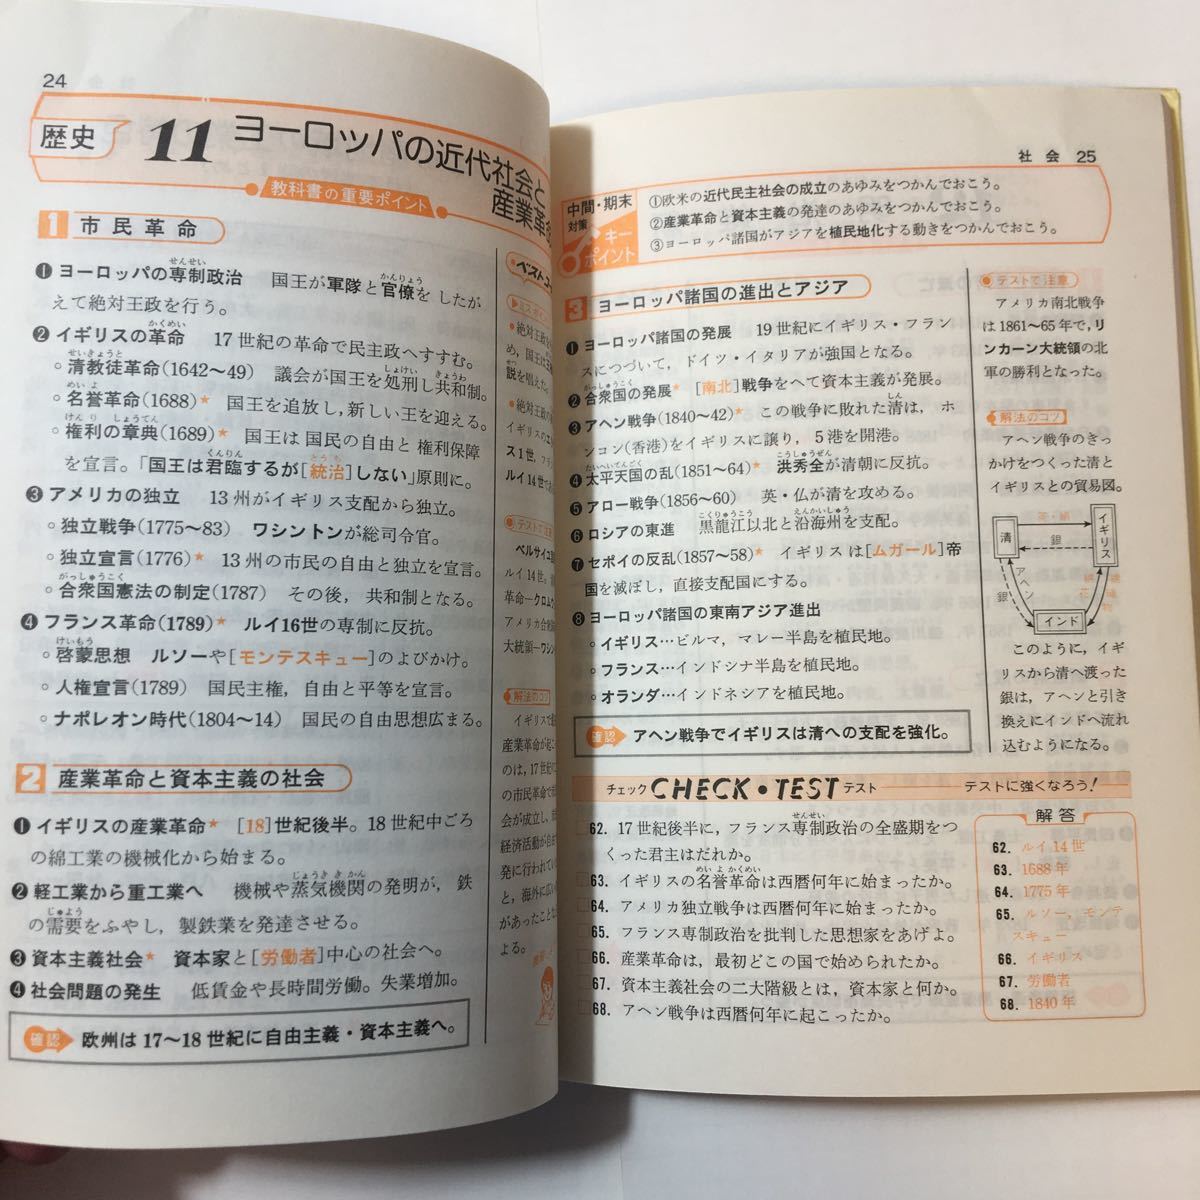 24
歴史 11 ヨーロッパの近代社会と
産業革
教科書の重要ポイント
1 市民革命
❶ ヨーロッパの専制政治 国王が軍隊と官僚を したが
えて絶対王政を行う。
❷ イギリスの革命 17世紀の革命で民主政へすすむ。
○清教徒革命(1642〜49) 議会が国王を処刑し共和制。
○名誉革命(1688)★ 国王を追放し,新しい王を迎える。
○権利の章典(1689)★ 国王は国民の自由と権利保障
を宣言。「国王は君臨するが[統治]しない」原則に。
❸ アメリカの独立 13州がイギリス支配から独立。
○独立戦争(1775〜83) ワシントンが総司令官。
○独立宣言(1776)★ 13州の市民の自由と独立を宣言。
○合衆国憲法の制定(1787) その後,共和制となる。
❹ フランス革命(1789)★ ルイ16世の専制に反抗。
○啓蒙思想 ルソーや[モンテスキュー]のよびかけ。
○人権宣言(1789) 国民主権,自由と平等を宣言。
○ナポレオン時代(1804〜14) 国民の自由思想広まる。
2 産業革命と資本主義の社会
❶ イギリスの産業革命★ [18]世紀後半。18世紀中ごろ
の綿工業の機械化から始まる。
❷ 軽工業から重工業へ 機械や蒸気機関の発明が,鉄
の需要をふやし,製鉄業を発達させる。
❸ 資本主義社会★ 資本家と[労働者]中心の社会へ。
❹ 社会問題の発生 低賃金や長時間労働。失業増加。
確認 欧州は17〜18世紀に自由主義・資本主義へ。
ベストコー
ミスポイン
●絶対王政の
め,国王は
説を唱えた。
●絶対王政の
イギリスのエ
ス1世,フラ
ルイ14世
テストで注
ベルサイユ
ルイ14世,
革命―クロムウ
アメリカ合衆
大統領―ワシン
解法のコツ
イギリスで
産業革命が起こ
のは,17世紀の
の市民革命で
会が成立し,
経済活動が自由
発に行われてい
と,海外に広い
があったことな
よる。
社会 25
中間・期末
対策
キー
ポイント
①欧米の近代民主社会の成立のあゆみをつかんでおこう。
②産業革命と資本主義の発達のあゆみをつかんでおこう。
③ヨーロッパ諸国がアジアを植民地化する動きをつかんでおこう。
3 ヨーロッパ諸国の進出とアジア
❶ ヨーロッパ諸国の発展 19世紀にイギリス・フラン
スにつづいて,ドイツ・イタリアが強国となる。
❷ 合衆国の発展★ [南北]戦争をへて資本主義が発展。
❸ アヘン戦争(1840〜42)★ この戦争に敗れた清は,ホ
ンコン(香港)をイギリスに譲り,5港を開港。
❹ 太平天国の乱(1851〜64)★ 洪秀全が清朝に反抗。
❺ アロー戦争(1856〜60) 英・仏が清を攻める。
❻ ロシアの東進 黒龍江以北と沿海州を支配。
❼ セポイの反乱(1857〜58)★ イギリスは[ムガール]帝
国を滅ぼし,直接支配国にする。
❽ ヨーロッパ諸国の東南アジア進出
○イギリス…ビルマ,マレー半島を植民地。
○フランス…インドシナ半島を植民地。
○オランダ…インドネシアを植民地。
確認 アヘン戦争でイギリスは清への支配を強化。
テストで注意
アメリカ南北戦争
は1861〜65年で,リ
ンカーン大統領の北
軍の勝利となった。
解法のコツ
アヘン戦争のきっ
かけをつくった清と
イギリスとの貿易図。
茶・絹
銀
清
イギリス
アヘン
銀
綿花
綿織物
インド
このように,イギ
リスから清へ渡った
銀は,アヘンと引き
換えにインドへ流れ
込むようになる。
チェック CHECK・TEST テスト テストに強くなろう!
62. 17世紀後半に,フランス専制政治の全盛期をつ
くった君主はだれか。
63. イギリスの名誉革命は西暦何年に始まったか。
64. アメリカ独立戦争は西暦何年に始まったか。
65. フランス専制政治を批判した思想家をあげよ。
66. 産業革命は,最初どこの国で始められたか。
67. 資本主義社会の二大階級とは,資本家と何か。
68. アヘン戦争は西暦何年に起こったか。
解答
62. ルイ14世
63. 1688年
64. 1775年
65. ルソー,モンテ
スキュー
66. イギリス
67. 労働者
68. 1840年